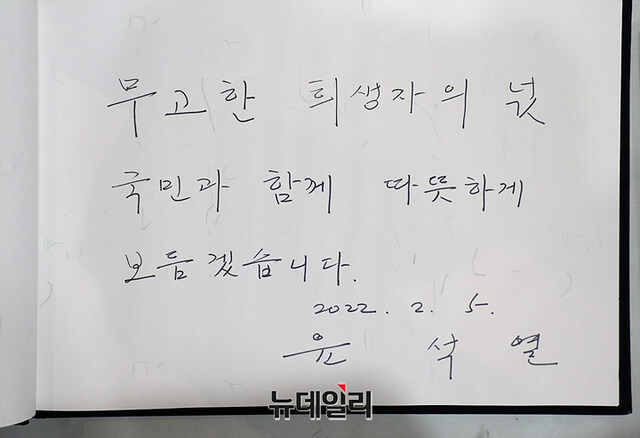 무고한 희생자의 넋
국민과 함께 따뜻하게
보듬겠습니다.
2022. 2. 5.
윤 석 열
뉴데일리